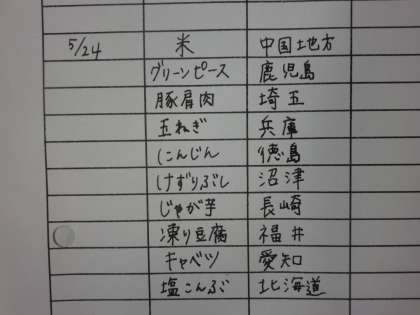 5/24 米 中国地方
グリーンピース 鹿児島
豚肩肉 埼玉
玉ねぎ 兵庫
にんじん 徳島
けずりぶし 沼津
じゃが芋 長崎
凍り豆腐 福井
キャベツ 愛知
塩こんぶ 北海道